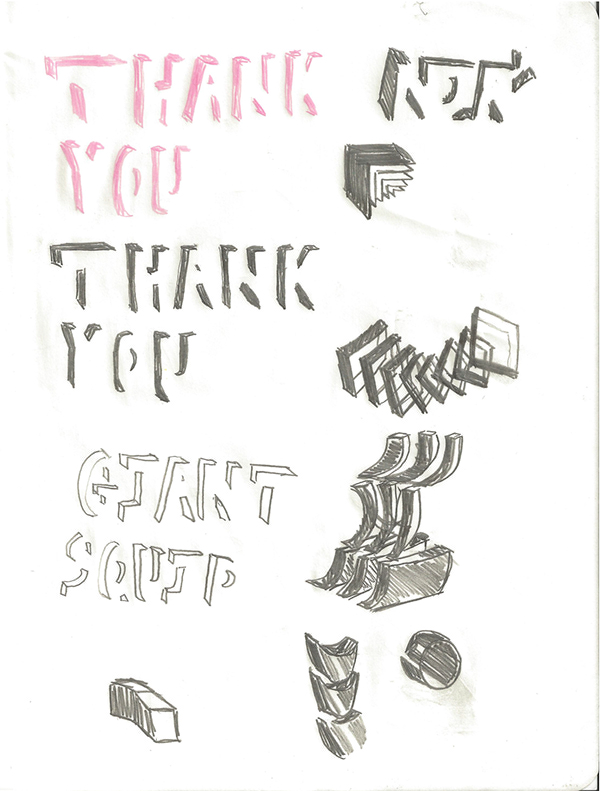 THANK
YOU
THANK
YOU
GIANT
SQUID